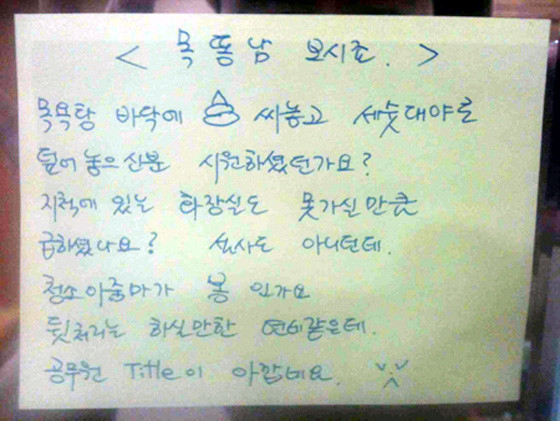 < 목똥남 보시죠. >
목욕탕 바닥에 싸놓고 세숫대야로
덮어 놓으신분 시원하셨던가요?
지척에 있는 화장실도 못가실만큼
급하셨나요? 설사도 아니던데.
청소아줌마가 봉 인가요
뒷처리는 하실만한 연배같은데.
공무원 Title이 아깝네요.